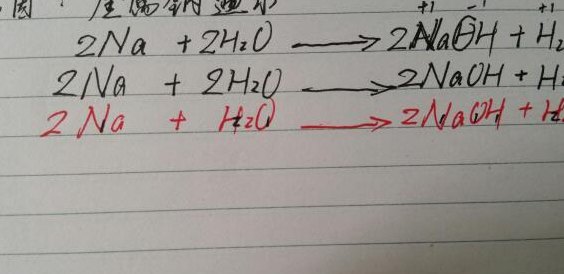 图：金属钠遇水
+1 -1 +1
2Na + 2H₂O ⟶ 2NaOH + H₂
2Na + 2H₂O ⟶ 2NaOH + H₂
2Na + H₂O ⟶ 2NaOH + H